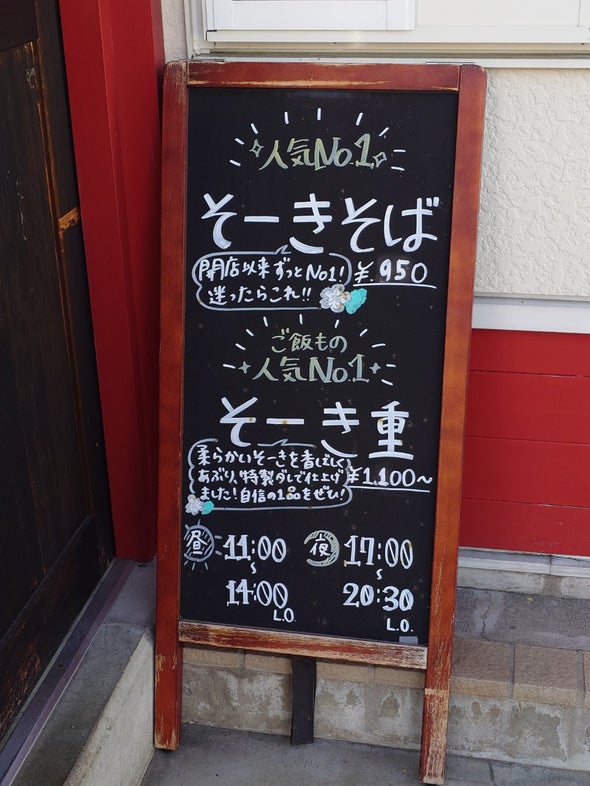 人気No.1
そーきそば
開店以来ずっとNo1!
迷ったらこれ!!
¥.950
ご飯もの
人気No.1
そーき重
柔らかいそーきを香ばしく
あぶり、特製ダレで仕上げ
ました!自信の1品をぜひ!
¥1.100~
昼 11:00
~
14:00
L.O.
夜 17:00
~
20:30
L.O.